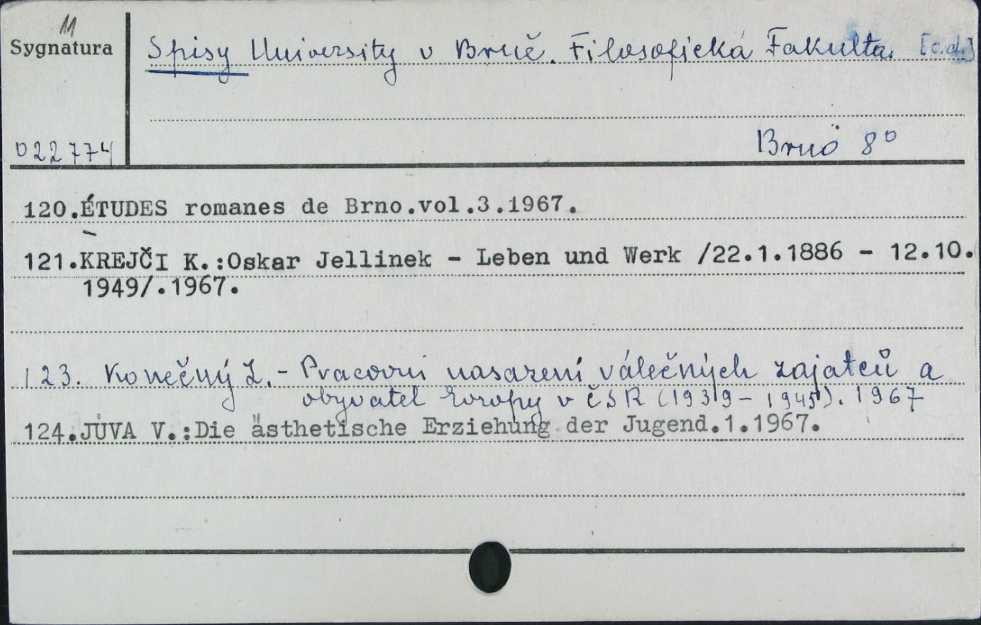 11
Sygnatura
Spisy University v Brně. Filosofická Fakulta. [c.d.]
022774
Brno 8°
120.ÉTUDES romanes de Brno.vol.3.1967.
121.KREJČI K.:Oskar Jellinek - Leben und Werk /22.1.1886 - 12.10.
1949/.1967.
123. Konečný Z.- Pracovni nasazení válečných zajatců a
obyvatel Evropy v ČSR (1939-1945). 1967
124.JŮVA V.:Die ästhetische Erziehung der Jugend.1.1967.